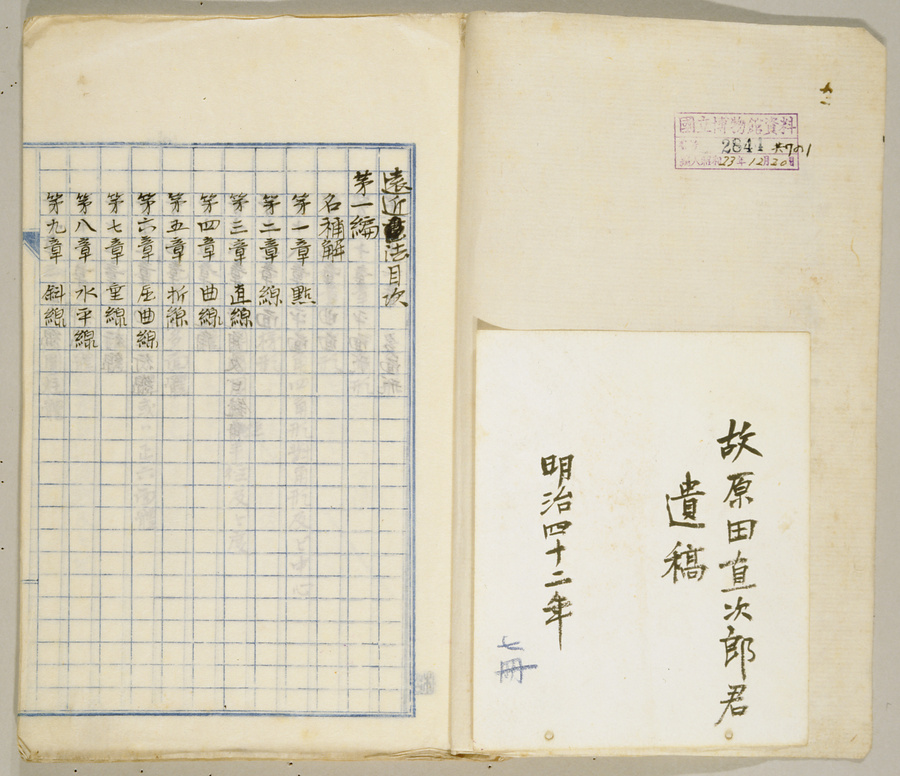 國立博物館資料
2841 共7の1
購入昭和23年12月20日
故原田直次郎君
遺稿
明治四十二年
七冊
遠近画法目次
第一編
名稱解
第一章 點
第二章 線
第三章 直線
第四章 曲線
第五章 折線
第六章 屈曲線
第七章 重線
第八章 水平線
第九章 斜線